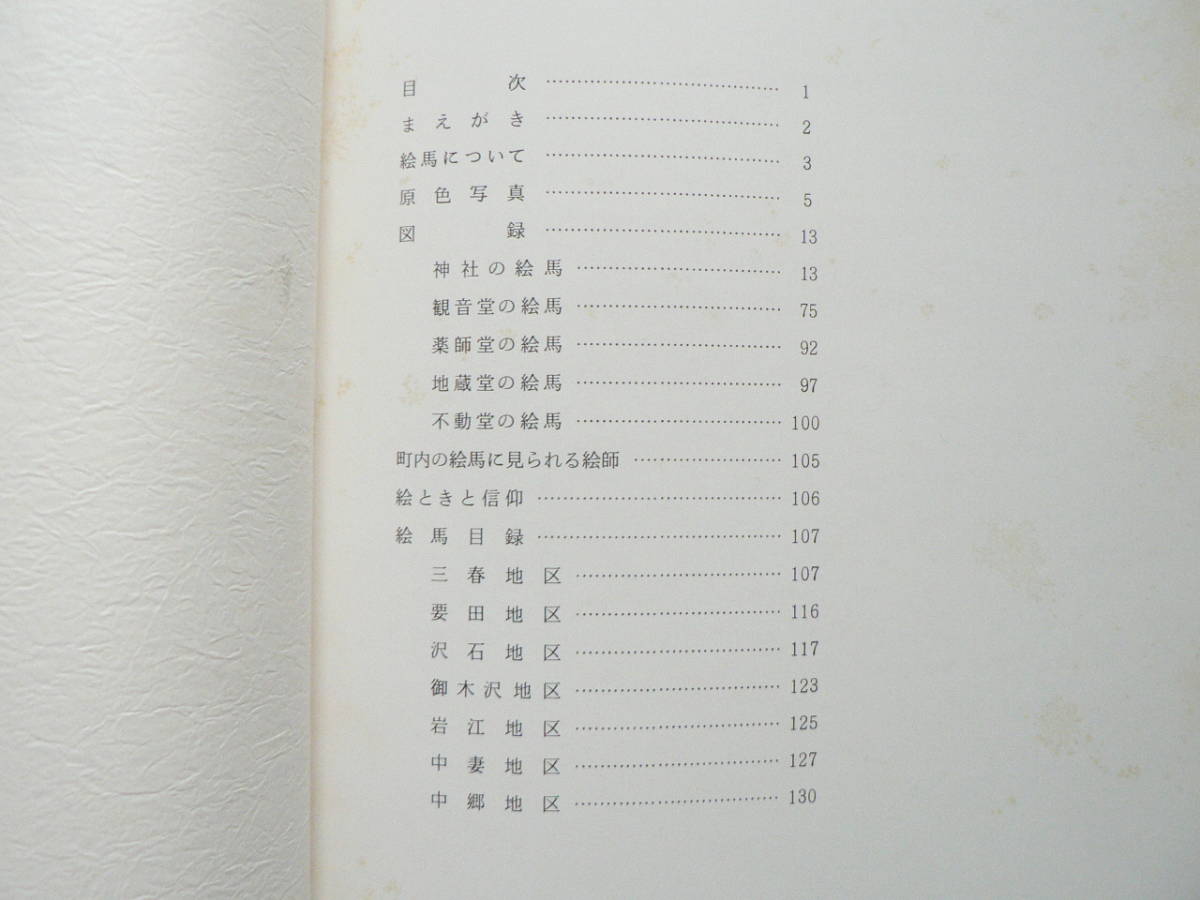 目次 …………………………… 1
まえがき …………………………… 2
絵馬について …………………………… 3
原色写真 …………………………… 5
図録 …………………………… 13
神社の絵馬 …………………………… 13
観音堂の絵馬 …………………………… 75
薬師堂の絵馬 …………………………… 92
地蔵堂の絵馬 …………………………… 97
不動堂の絵馬 …………………………… 100
町内の絵馬に見られる絵師 …………………… 105
絵ときと信仰 …………………………… 106
絵馬目録 …………………………… 107
三春地区 …………………………… 107
要田地区 …………………………… 116
沢石地区 …………………………… 117
御木沢地区 …………………………… 123
岩江地区 …………………………… 125
中妻地区 …………………………… 127
中郷地区 …………………………… 130